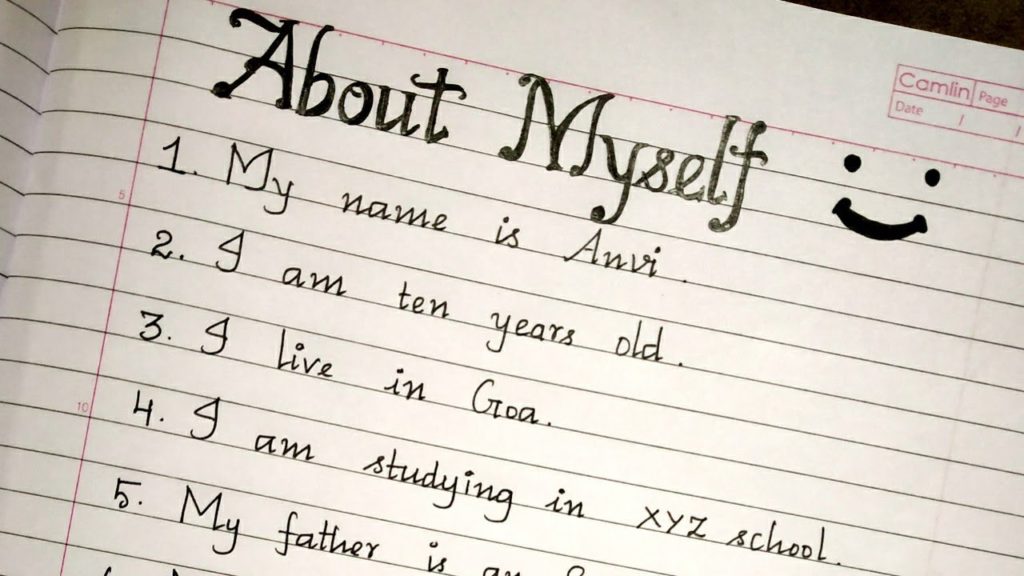 About Myself
Camlin Page
Date / /
1. My name is Anvi.
5
2. I am ten years old.
3. I live in Goa.
10
4. I am studying in XYZ school.
5. My father is an